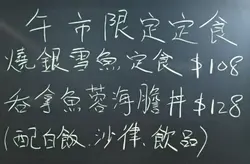 午市限定定食
燒銀雪魚定食 $108
吞拿魚蓉海膽丼 $128
(配白飯、沙律、飲品)